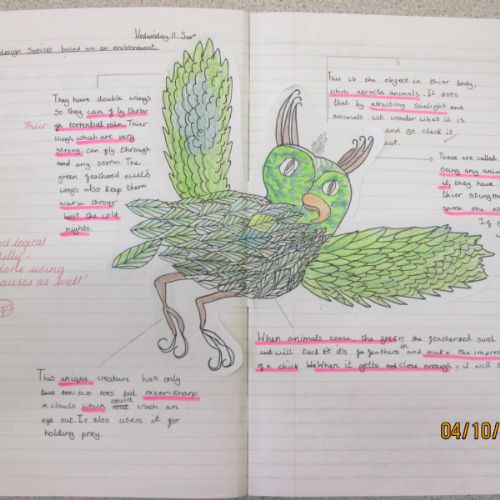 Wednesday 11 Sep
design species based on an environment.
They have double wings
so they can fly throw
gh torrential rain. Thier
wings which are very
strong, can fly through
and any storm. The
green feathered owels
wings also keep them
warm throug-
hout the cold
nights.
Their
logical
done using
clauses as well!
This unique creature has only
two toes but razer-sharp
claws which could crack an
eye out. It also uses it for
holding prey.
This is the object in thier body,
which atracts animals. It does
that by atracting sunlight and
animals will wonder what it is
and go check it
out.
These are called
sting any anim
it, they have
thier sting
some one
If
When animals come, the green the featherized owel
will tuck it its feathers in and make the impres
of a chick. When it gets close enough, it will s
04/10/